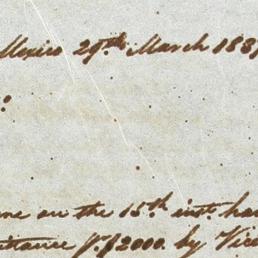 Mexico 29th March 183
:
me on the 15th inst ha
ttance pr $2000. by Vic